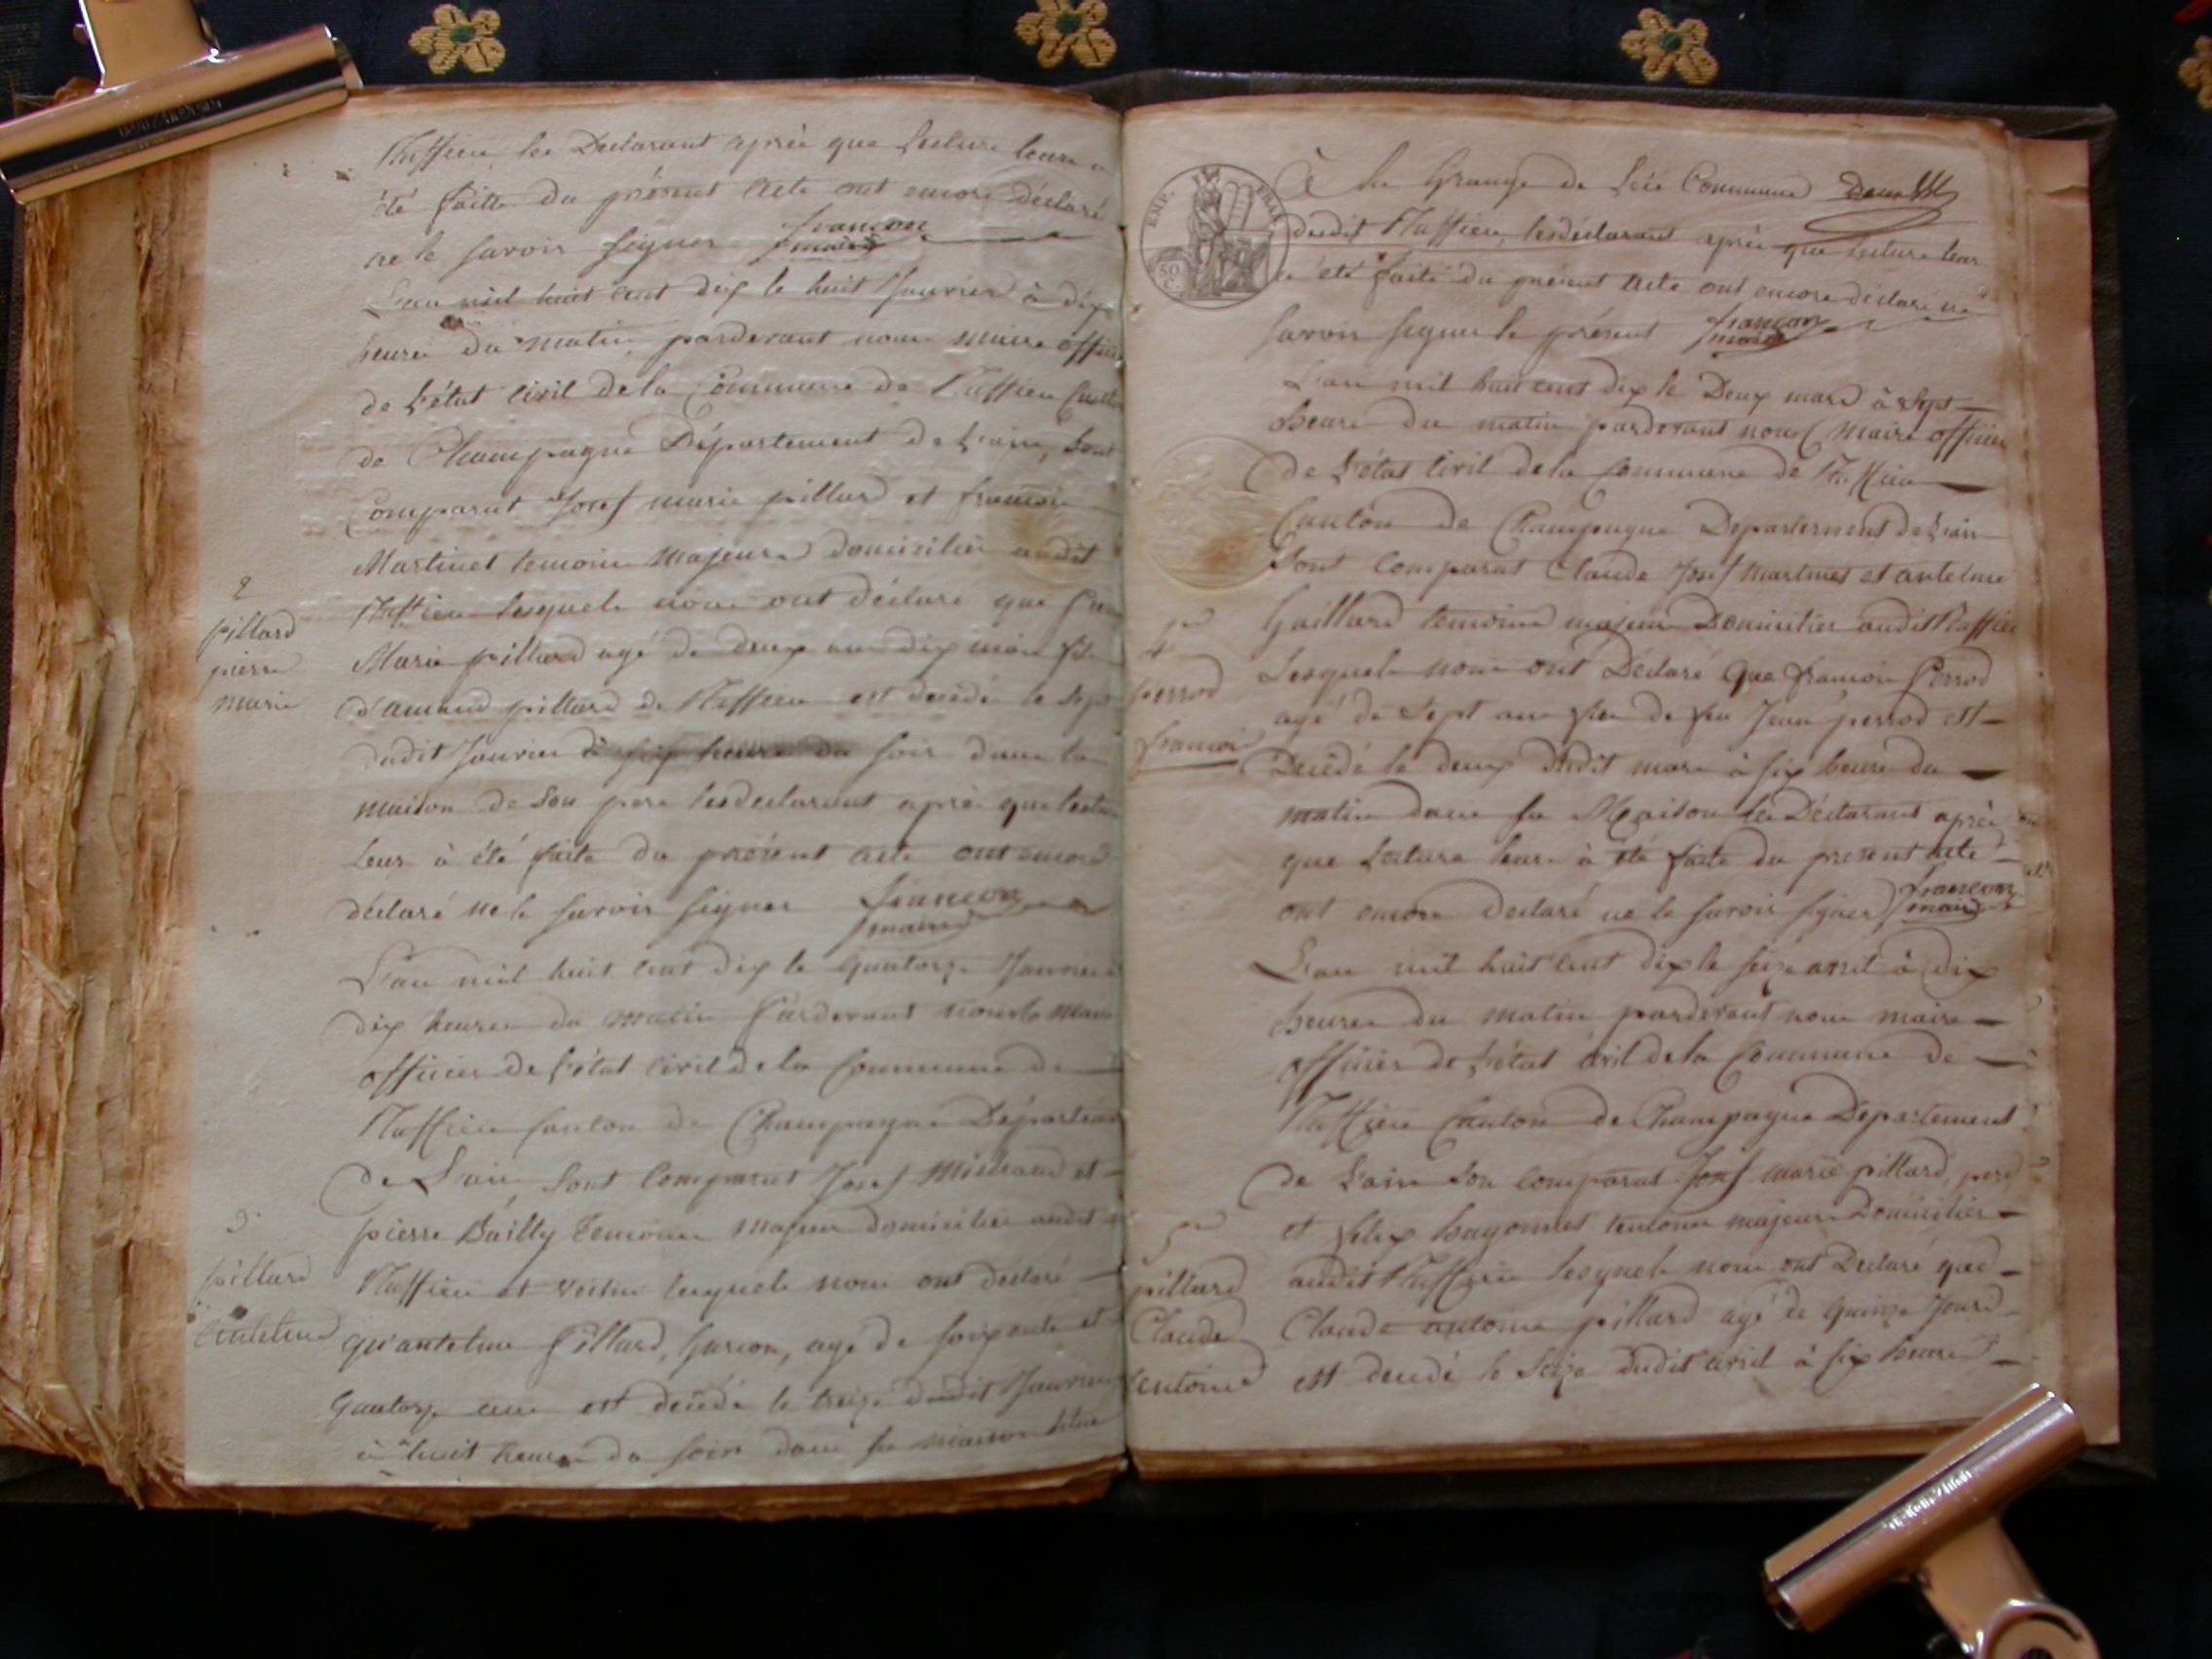 Ruffieu les Declarant après que lecture leure a
été faitte du présent acte ont encore déclaré
ne le savoir signer françon
maire
L'an mil huit cent dix le huit Janvier à dix
heures du matin pardevant nous maire officier
de L'état Civil de la Commune de Ruffieu Canton
de Champagne Département de L'ain, Sont
Comparut Josef marie pillard et françois
Martinet temoins majeurs domiciliés audit
Ruffieu lesquels nous ont déclaré que
2
pillard
pierre
marie
Marie pillard agé de deux ans dix mois fils
d'amand pillard de Ruffieu est décédé le Sept
dudit Janvier à six heures du soir dans la
maison de Son pere les declarant après que lecture
Leur à été faite du présent acte ont encore
déclaré ne le savoir signer françon
maire
L'an mil huit cent dix le Quatorze Janvier à
dix heures du matin Pardevant nous le maire
officier de L'état Civil de la Commune de
Ruffieu Canton de Champagne Département
de L'ain, Sont Comparut Josef et
pierre Bailly temoins majeur domiciliés audit
3
pillard
antelme
Ruffieu et voisins lesquels nous ont déclaré
qu'antelme Pillard, Garcon, agé de soixante et
Quatorze ans est décédé le treize dudit Janvier
à huit heures du soir dans sa maison située
EMP. FRAN.
50 C.
À la Grange de Commune Deux
dudit Ruffieu, les declarant après que lecture leur
a été faite du présent acte ont encore déclaré ne
savoir signer le présent françon
maire
L'an mil huit cent dix le Deux mars à Sept
heure du matin pardevant nous maire officier
de L'état Civil de la Commune de Ruffieu
Canton de Champagne Departement de L'ain
Sont Comparut Claude Josef martinet et antelme
Gaillard temoins majeurs Domicilier audit Ruffieu
4e
perrod
francois
Lesquels nous ont Déclaré Que françois Perrod
agé de Sept ans fils de feu Jean perrod est
Décédé le deux dudit mars à six heure du
matin dans sa Maison les Déclarant après
que Lecture leur à été faite du present acte
ont encore declaré ne le savoir signer françon
maire
L'an mil huit cent dix le seize avril à dix
heures du matin pardevant nous maire
officier de L'état Civil de la Commune de
Ruffieu Canton de Champagne Departement
de L'ain Son comparut Josef marie pillard, pere
et felix hugonnet temoins majeurs Domicilier
5e
pillard
Claude
antoine
audit Ruffieu lesquels nous ont Declaré que
Claude antoine pillard agé de Quinze Jours
est decedé le Seize dudit avril à six heure